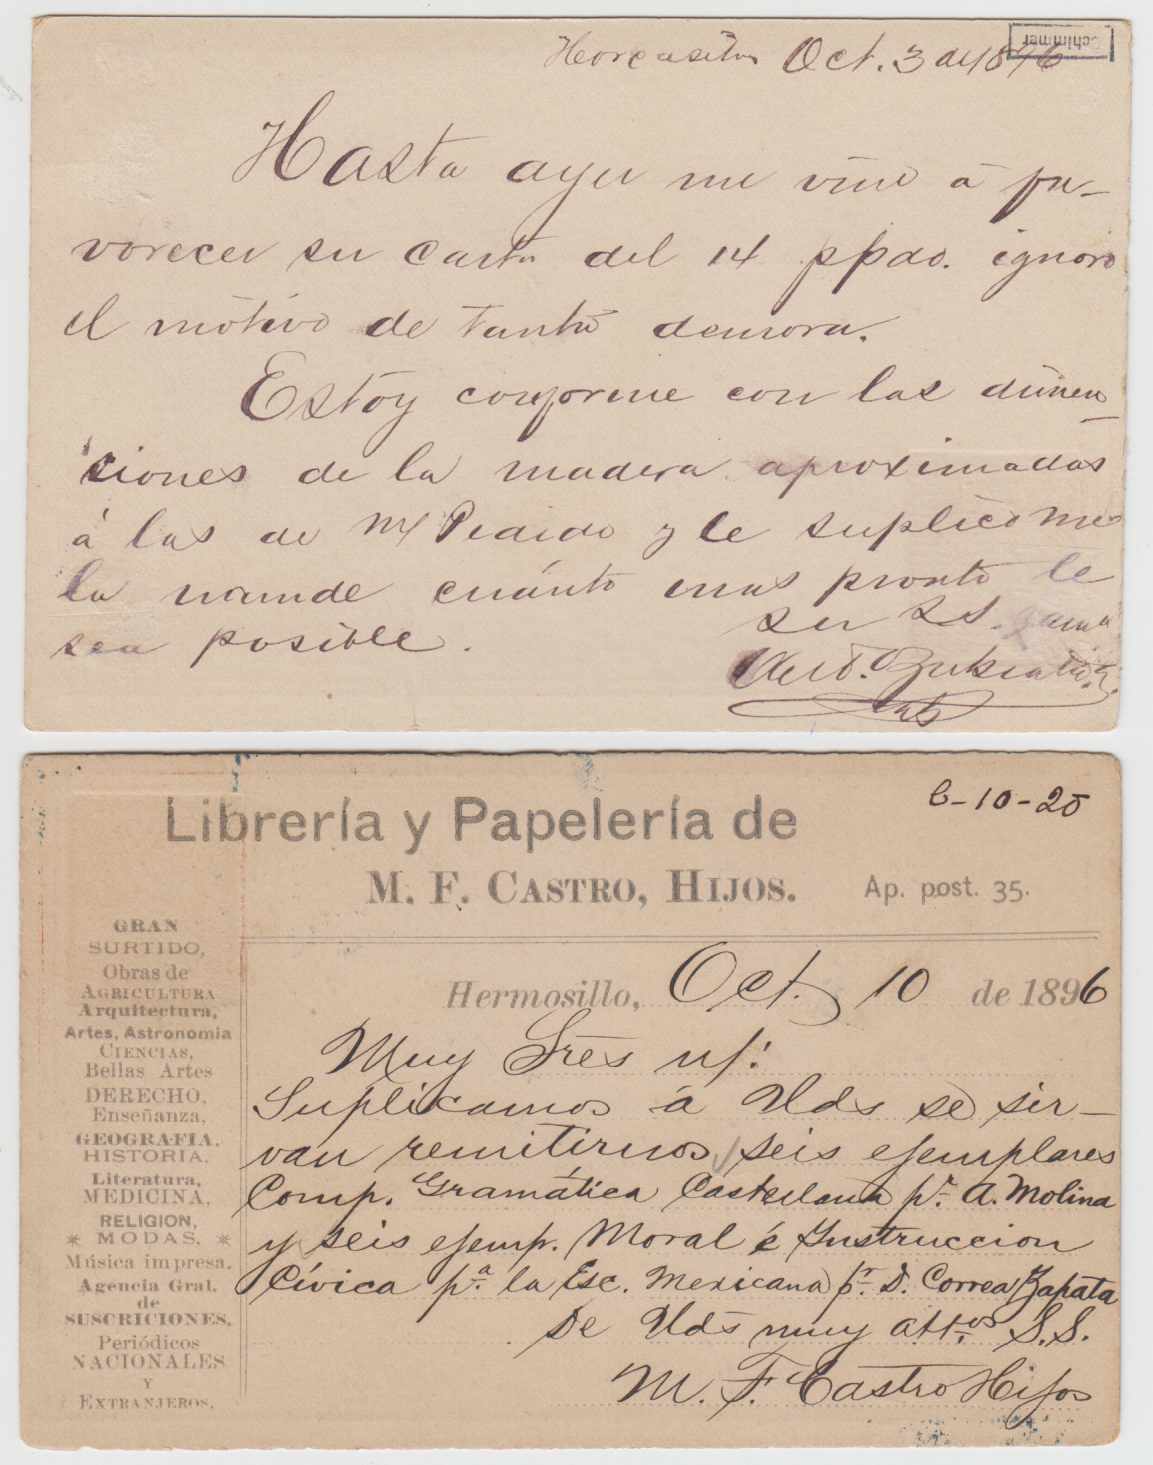 Horcasitas Oct. 3 de 1896
Schimmer
Hasta ayer me vino á fa-
vorecer su carta del 14 ppdo. ignoro
el motivo de tanta demora.
Estoy conforme con las dimen-
ciones de la madera aproximadas
á las de m/ Pedido y le suplico me
la mande cuánto mas pronto le
sea posible.
su S. S.
6-10-20
Librería y Papelería de
M. F. CASTRO, HIJOS. Ap. post. 35.
GRAN
SURTIDO,
Obras de
AGRICULTURA
Arquitectura,
Artes, Astronomia
CIENCIAS,
Bellas Artes
DERECHO,
Enseñanza,
GEOGRAFIA.
HISTORIA.
Literatura,
MEDICINA,
RELIGION,
* MODAS. *
Música impresa.
Agencia Gral.
de
SUSCRICIONES,
Periódicos
NACIONALES
Y
EXTRANJEROS.
Hermosillo, Oct. 10 de 1896
Muy Sres n/:
Suplicamos á Uds se sir-
van remitirnos, seis ejemplares
Comp. Gramática Castellana pr. A. Molina
y seis ejemp. Moral é Instruccion
Cívica pa. la Esc. Mexicana pr. D. Correa Zapata
De Uds muy attos. S.S.
M. F. Castro Hijos